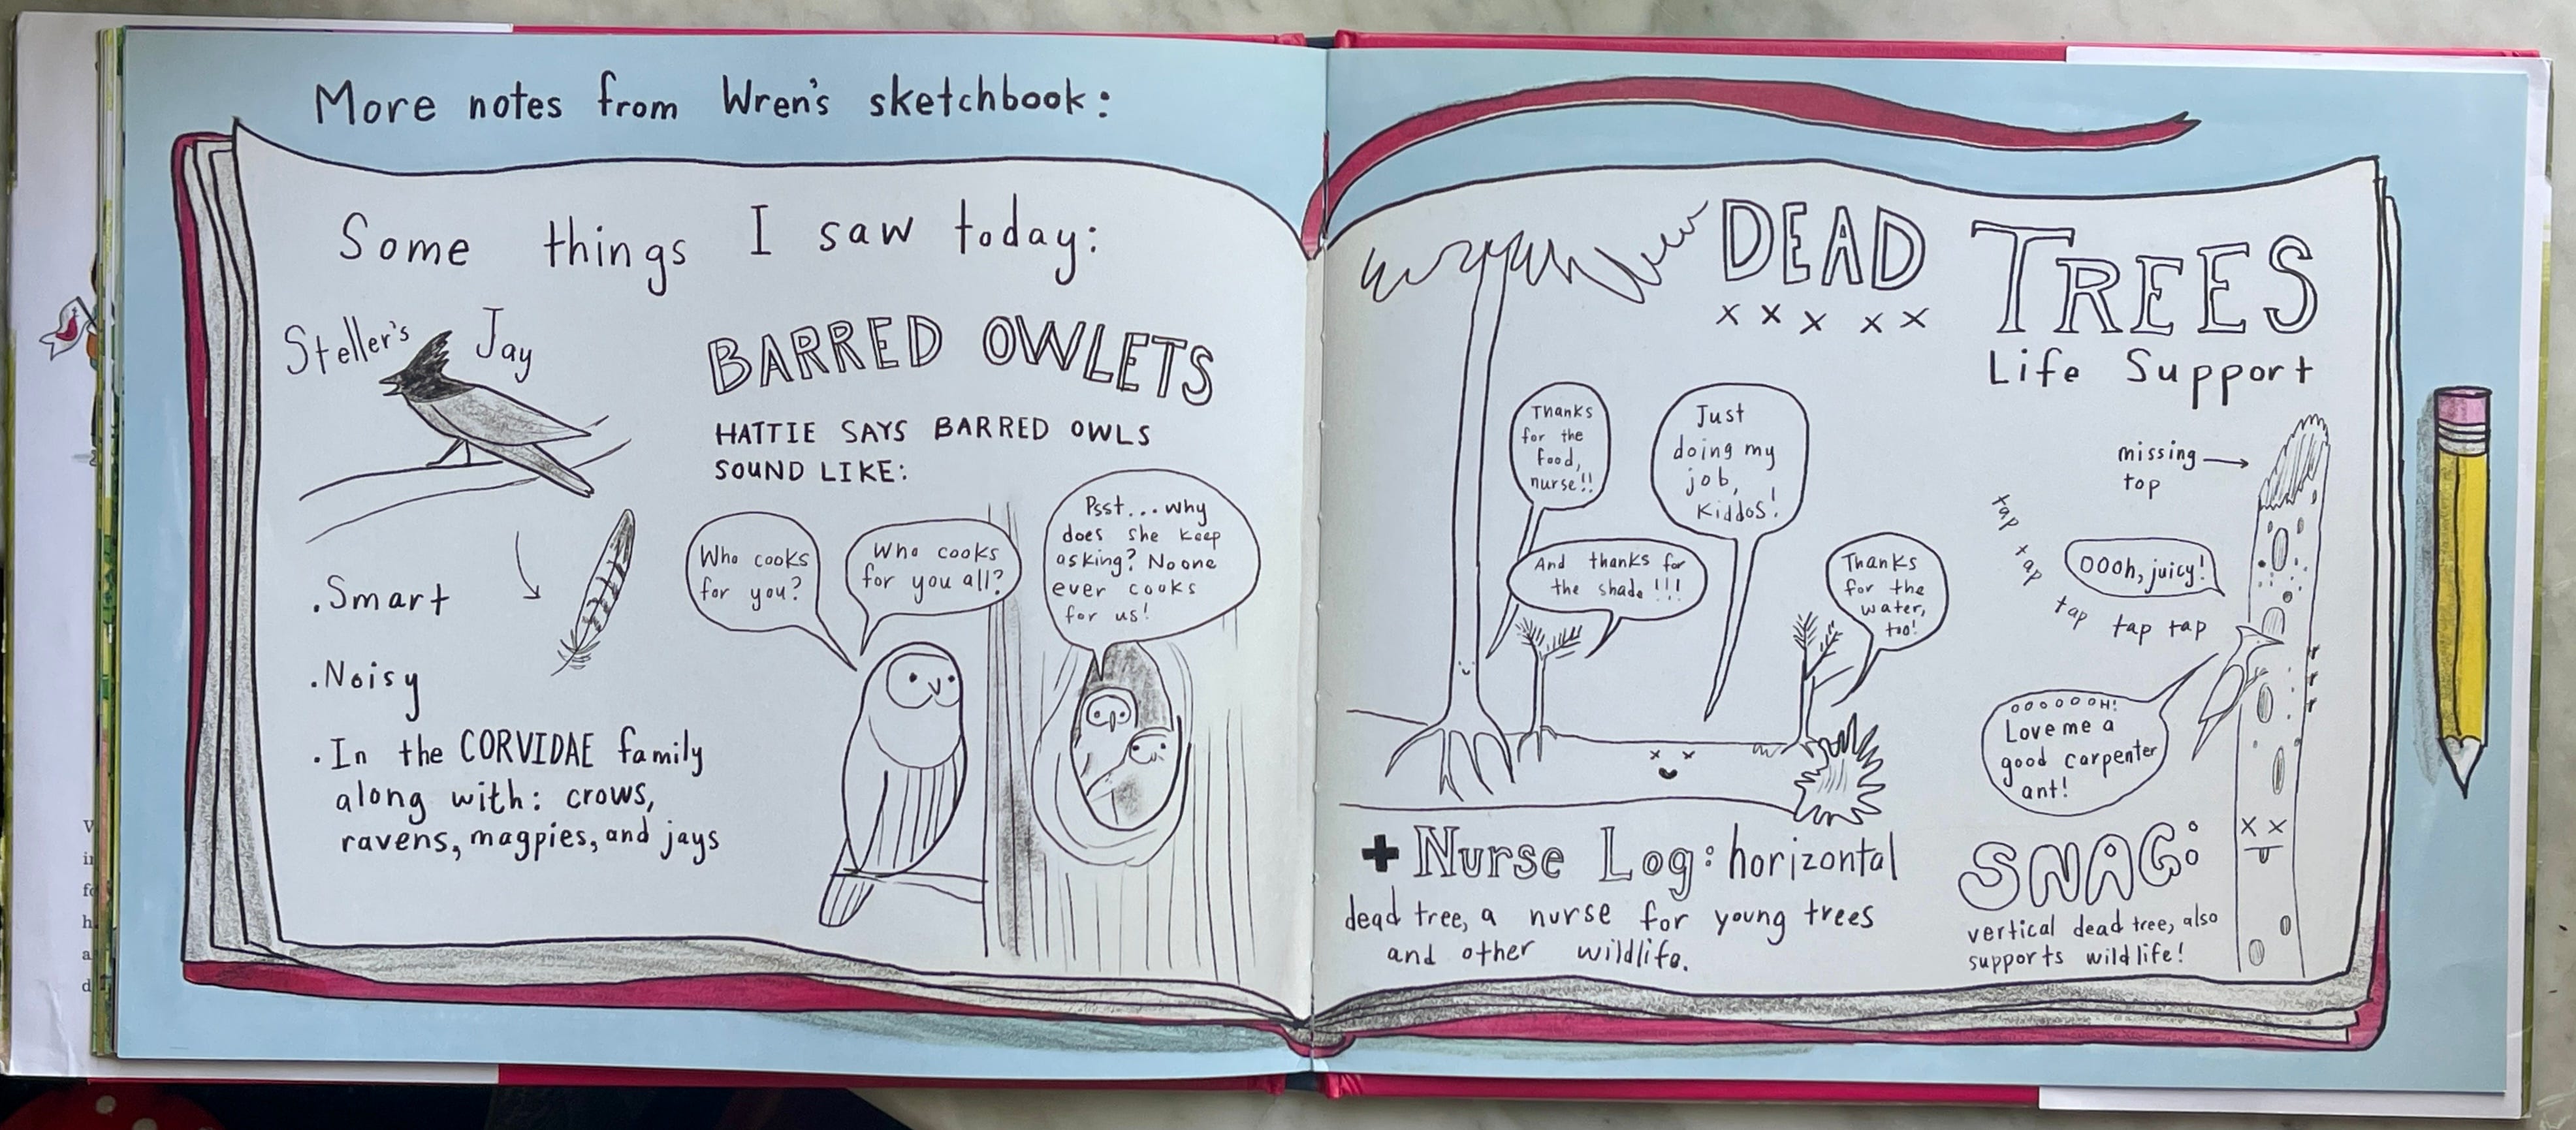 More notes from Wren's sketchbook:
Some things I saw today:
Steller's Jay
.Smart
.Noisy
.In the CORVIDAE family
along with: crows,
ravens, magpies, and jays
BARRED OWLETS
HATTIE SAYS BARRED OWLS
SOUND LIKE:
Who cooks
for you?
Who cooks
for you all?
Psst...why
does she keep
asking? No one
ever cooks
for us!
DEAD TREES
x x x x x
Life Support
Thanks
for the
food,
nurse!!
Just
doing my
job,
Kiddos!
And thanks for
the shade!!!
Thanks
for the
water,
too!
+ Nurse Log: horizontal
dead tree, a nurse for young trees
and other wildlife.
missing
top
tap
tap
tap tap tap
OOoh, juicy!
OOOOOOH!
Love me a
good carpenter
ant!
SNAG:
vertical dead tree, also
supports wildlife!